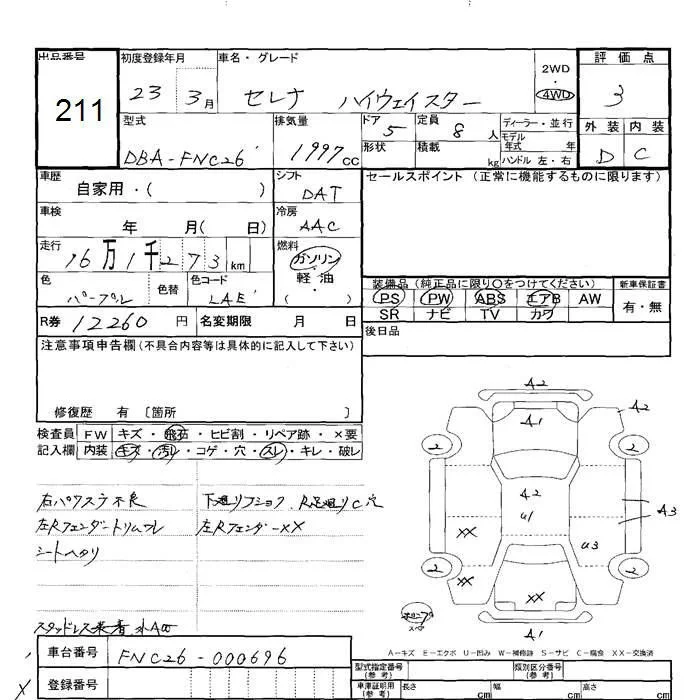 出品番号 初度登録年月 車名・グレード 2WD・4WD 評価点
211 23 3月 セレナ ハイウェイスター 3
型式 排気量 ドア 5 定員 8人 ディーラー・並行 外装 内装
DBA-FNC26 1997cc 形状 積載 kg モデル年式 年 D C
ハンドル 左・右
車歴 自家用・( ) シフト DAT セールスポイント (正常に機能するものに限ります)
車検 年 月( 日) 冷房 AAC
走行 16万1千273km 燃料 ガソリン 軽油 ( ・ )
色 パープル 色替 色コード LAE 装備品 (純正品に限り○をつけてください) 新車保証書
PS PW ABS エアB AW 有・無
SR ナビ TV カワ
R券 12260円 名変期限 月 日 後日品
注意事項申告欄(不具合内容等は具体的に記入して下さい)
修復歴 有 〔箇所 〕
検査員 FW キズ・飛石・ヒビ割・リペア跡・×要
記入欄 内装 キズ・汚レ・コゲ・穴・スレ・キレ・破レ
右パワスラ不良 下廻りフショク R足廻りC穴
左Rフェンダートリムワレ 左Rフェンダーxx
シートヘタリ
スタッドレス装着
A2
A1
A2
2 2
A2
U1
A3
xx U3
2 2
xx xx
A1
スペア
A-キズ E-エクボ U-凹み W-補修跡 S-サビ C-腐食 XX-交換済
車台番号 FNC26-000696
登録番号
型式指定番号(参考) 類別区分番号(参考)
車庫証明用(参考) 長さ cm 幅 cm 高さ cm